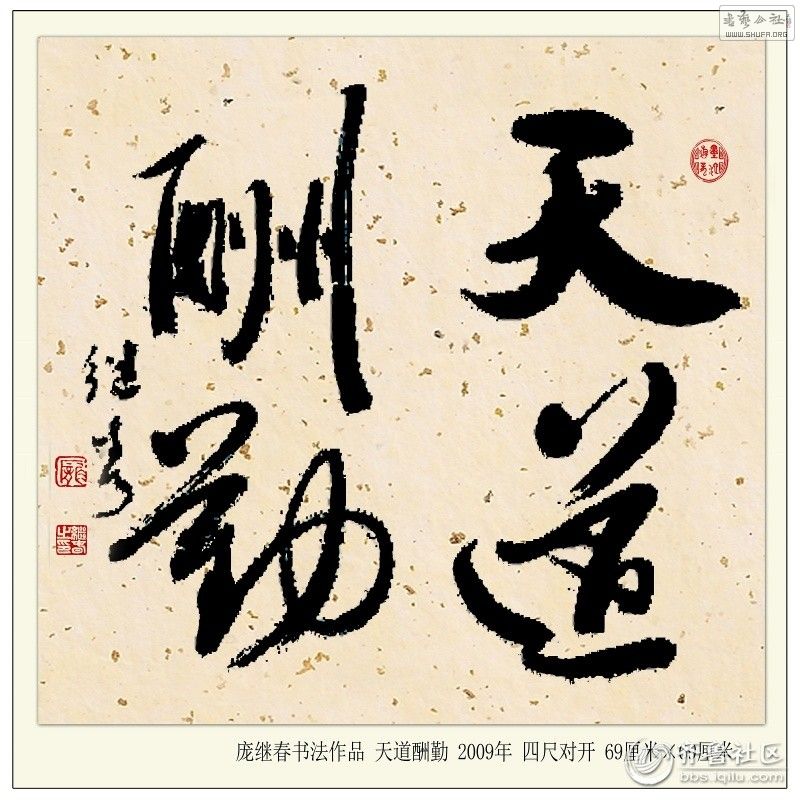 书艺公社
WWW.SHUFA.ORG
天道
酬勤
继春
庞继春书法作品 天道酬勤 2009年 四尺对开 69厘米×68厘米
齐鲁社区
bbs.iqilu.com